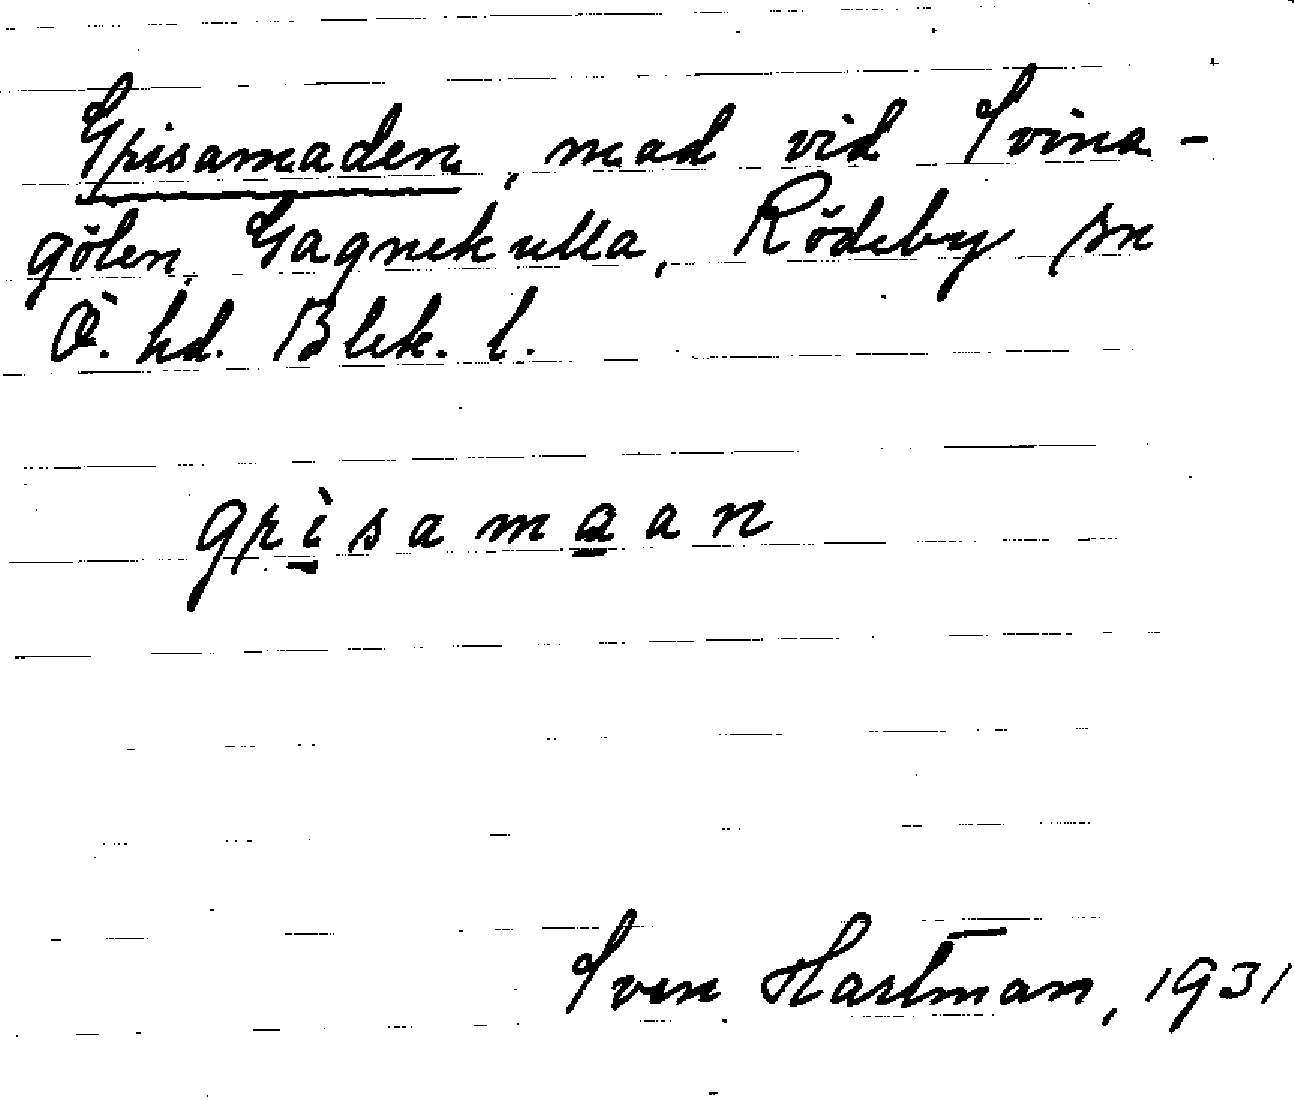 Grisamaden, mad vid Svina-
gölen, Gagnekulla, Rödeby sn
Ö. hd. Blek. l.
grisamaan
Sven Hartman, 1931